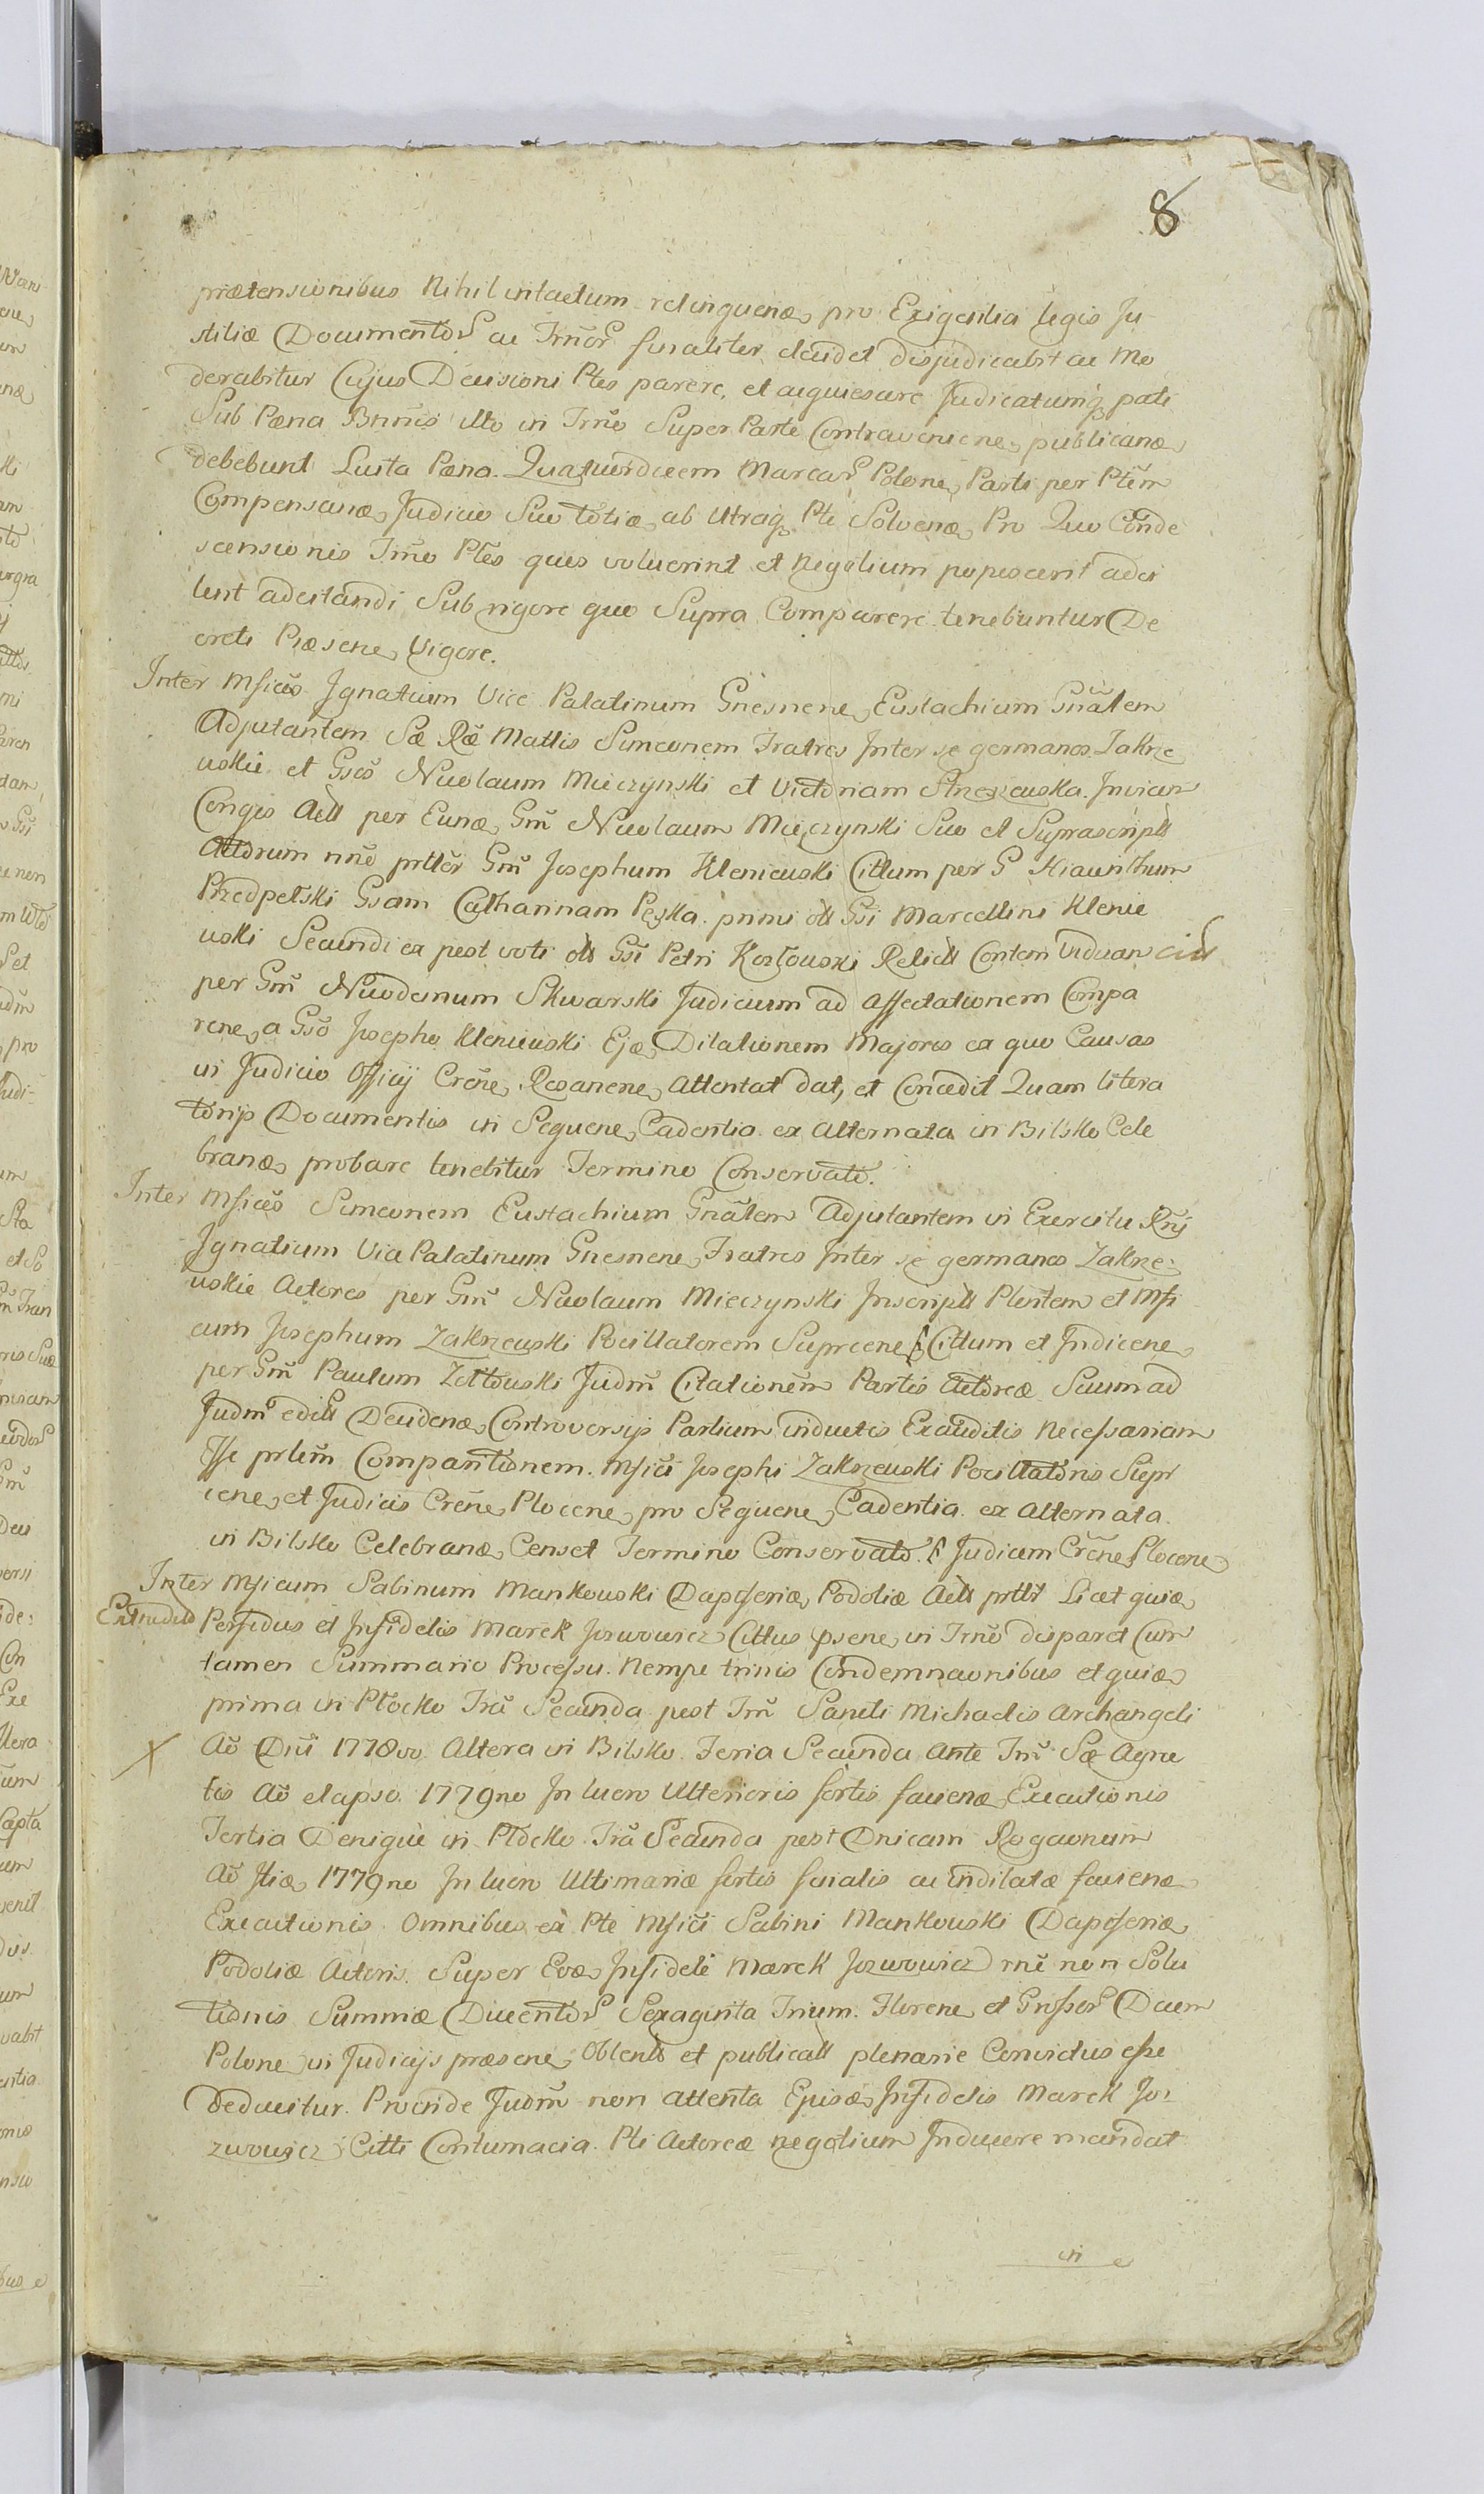 8
prætensionibus Nihil intactum relinquenæ pro Exigentia legis Ju
stitiæ Documentor ac Trnor finaliter decidet disjudicabit ac Mo
derabitur Cujus Decisioni Ptes parere, et acquiescere Judicatumq pati
Sub Pæna Bnnis illo in Trno Super Parte Contraveniene publicanæ
debebunt Luita Pæna Quatuordecem Marcar Polone Parti per Ptem
Compensanæ Judicio Suo totiæ ab Utraq Pte Solvenæ Pro Quo Conde
scensionis Trno Ptes quos voluerint et Negotium poposcerit adci
tent adcitandi Sub rigore quo Supra Comparere tenebuntur De
creti Præsene Vigore.
Inter Mficos Ignatium Vice Palatinum Gnesnene, Eustachium Gnalem
Adjutantem Sæ Ræ Mattis Simeonem Fratres Inter se germanos Zakrze
wskie et Gsos Nicolaum Mieczynski et Victoriam Strzeszewska Invicem
Conges Actt per Eunæ Gm Nicolaum Mieczynski Suo et Suprascriptt
Actorum nne prtter Gm Josephum Kleniewski Cittum per G Hiacinthum
Przedpełski Gsam Catharinam Peszka primi ott Gsi Marcellini Klenie
wski Secundi ex post voti ott Gsi Petri Kozłowski Relictt Contem Viduam citt
per Gm Nicodemum Skwarski Judicium ad affectationem Compa
rene a Gso Josepho Kleniewski Ejæ Dilationem Majores ex quo Causas
in Judicio Officij Crene Rosanene Attentat dat, et Concedit Quam litera
torijs Documentis in Sequene Cadentia ex Alternata in Bilsko Cele
branæ probare tenebitur Termino Conservato.
Inter Mficos Simeonem Eustachium Gnalem Adjutantem in Exercitu Rnj
Ignatium Vice Palatinum Gnesnene Fratres Inter se germanos Zakrze
wskie Actores per Gm Nicolaum Mieczynski Inscriptt Plentem et Mfi
cum Josephum Zakrzewski Pocillatorem Suprcene Cittum et Indicene
per Gm Paulum Zółtowski Judm Citationem Partis Actoreæ Suum ad
Judm editt Decidenæ Controversijs Partium inductis Exauditis Necessariam
Esse prlem Comparitionem Mfici Josephi Zakrzewski Pocillatoris Supr
cene et Judicis Crene Plocene pro Sequene Cadentia ex Alternata
in Bilsko Celebranæ Censet Termino Conservato. Judicem Crene Plocene
Inter Mficum Sabinum Mankowski Dapiferiæ Podoliæ Actt prttt Licet quiæ
Extradid Perfidus et Infidelis Marek Jozwowicz Cittus psene in Trno disparet Cum
tamen Summario Processu Nempe trinis Condemnaonibus et quiæ
prima in Płocko Fria Secunda post Fm Sancti Michaelis Archangeli
X Ao Dni 1778vo Altera in Bilsko Feria Secunda Ante Fm Sæ Agne
tis Ao elapso 1779no In lucro Ulterioris fortis faciene Executionis
Tertia Denique in Płocko Fria Secunda post Dnicam Rogaonum
Ao Itiæ 1779no In lucro Ultimariæ fortis finalis ac indilatæ faciene
Executionis Omnibus ex Pte Mfici Sabini Mankowski Dapiferiæ
Podoliæ Actoris Super Eoæ Infideli Marek Jozwowicz rne non Solu
tionis Summæ Ducentor Sexaginta Trium Florene et Grossor Decem
Polone in Judicijs præsene Obtentt et publicatt plenarie Convictus esse
Deducitur. Proinde Judm non attenta Ejusæ Infidelis Marek Jo
zwowicz Citti Contumacia Pti Actoreæ negotium Inducere mandat
in